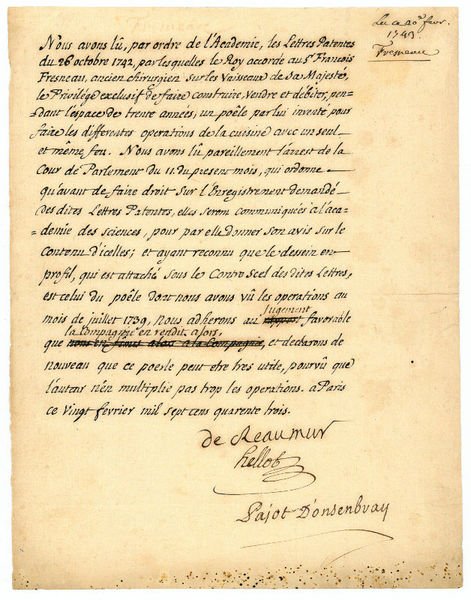 Lu a 20e fevr.
1743
Fresneau
Nous avons lû, par ordre de l'Academie, les Lettres Patentes
du 26 octobre 1742, par lesquelles le Roy accorde au Sr. François
Fresneau, ancien chirurgien sur les Vaisseaux de Sa Majesté,
le Privilége exclusif de faire construire, Vendre et débiter, pen-
dant l'espace de trente années, un poêle par lui inventé pour
faire les differentes operations de la cuisine avec un seul
et même feu. Nous avons lû pareillement l'arrest de la
Cour de Parlement du 11 du present mois, qui ordonne
qu'avant de faire droit Sur l'Enregistrement demandé
des dites Lettres Patentes, elles seront communiquées à l'aca-
demie des sciences, pour par elle donner Son avis Sur le
Contenu d'icelles; et ayant reconnu que le dessein en
profil, qui est attaché Sous le Contrescel des dites Lettres,
est celui du poêle dont nous avons vû les operations au
mois de juillet 1739, Nous adherons au jugement favorable
que la Compagnie en rendit alors, et declarons de
nouveau que ce poesle peut être très utile, pourvû que
l'auteur n'en multiplie pas trop les operations. a Paris
ce Vingt fevrier mil sept cens quarente trois.
de Reaumur
hellot
Pajot D'onsenbray